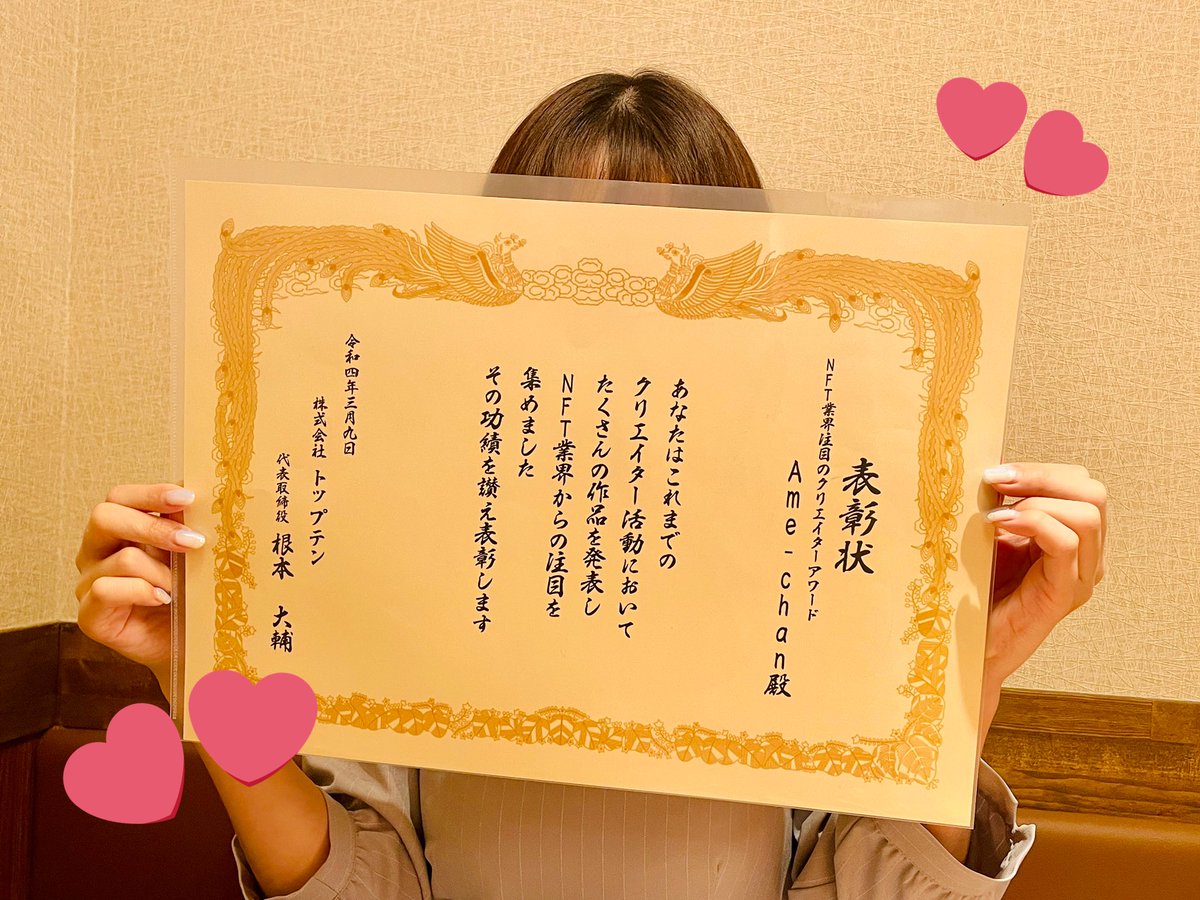 表彰状
NFT業界注目のクリエイターアワード
Ame-chan殿
あなたはこれまでの
クリエイター活動において
たくさんの作品を発表し
NFT業界からの注目を
集めました
その功績を讃え表彰します
令和四年三月九日
株式会社 トップテン
代表取締役 根本 大輔